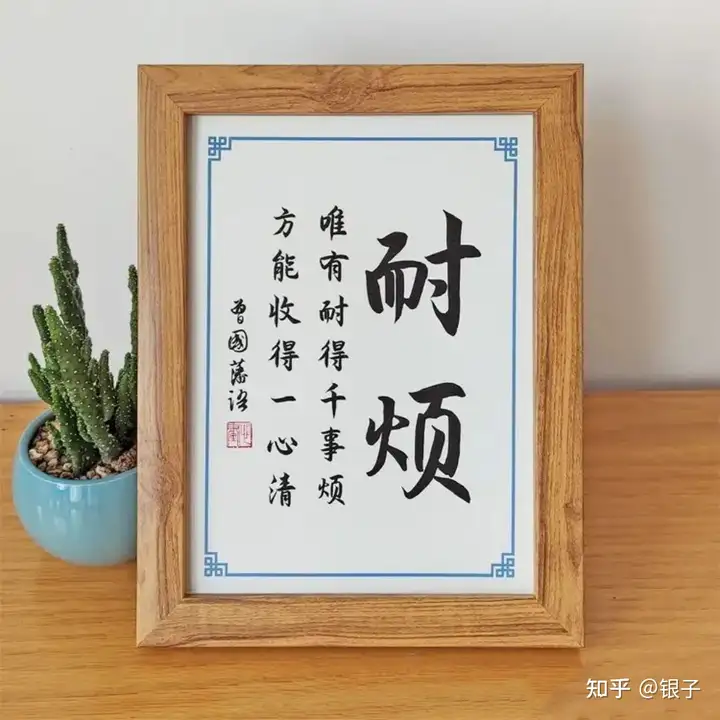 耐烦
唯有耐得千事烦
方能收得一心清
曾國藩语
知乎 @银子